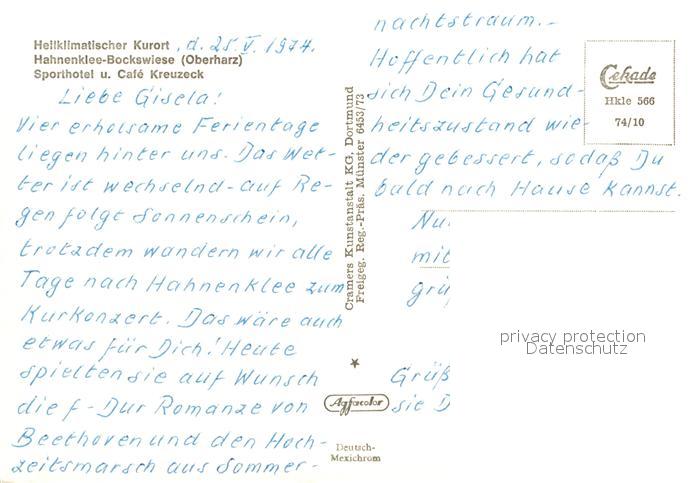 Heilklimatischer Kurort, d. 25. V. 1974.
Hahnenklee-Bockswiese (Oberharz)
Sporthotel u. Café Kreuzeck
Liebe Gisela!
Vier erholsame Ferientage
liegen hinter uns. Das Wet-
ter ist wechselnd - auf Re-
gen folgt Sonnenschein,
trotzdem wandern wir alle
Tage nach Hahnenklee zum
Kurkonzert. Das wäre auch
etwas für Dich! Heute
spielten sie auf Wunsch
die f-Dur Romanze von
Beethoven und den Hoch-
zeitsmarsch aus Sommer-
nachtstraum.-
Hoffentlich hat
sich Dein Gesund-
heitszustand wie-
der gebessert, sodaß Du
bald nach Hause kannst.
Nu
mit
grü
Grüß
sie D
Cramers Kunstanstalt KG, Dortmund
Freigeg. Reg.-Präs. Münster 6453/73
Agfacolor
Deutsch-
Mexichrom
Cekade
Hkle 566
74/10
privacy protection
Datenschutz